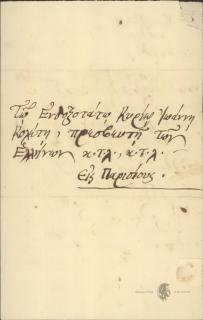 Τῷ Ἐνδοξοτάτῳ Κυρίῳ Ἰωάννῃ
Κολέτῃ, πρεσβευτῇ τῶν
Ἑλλήνων κ.τ.λ., κ.τ.λ.
Εἰς Παρισίους.